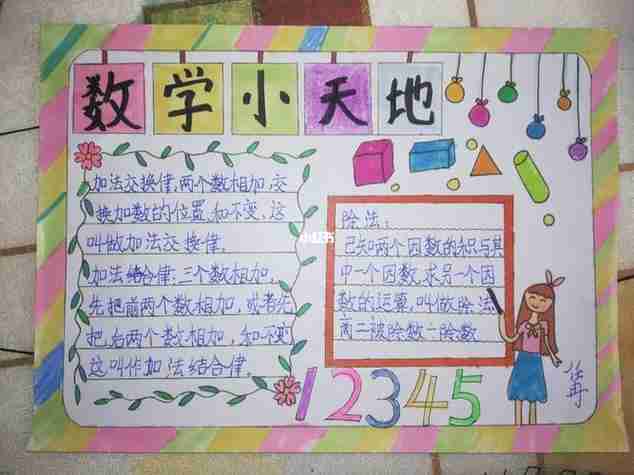 数学小天地
加法交换律：两个数相加，交
换加数的位置，和不变，这
叫做加法交换律。
加法结合律：三个数相加，
先把前两个数相加，或者先
把后两个数相加，和不变
这叫作加法结合律。
小红书
除法：
已知两个因数的积与其
中一个因数，求另一个因
数的运算，叫做除法
商=被除数÷除数
12345